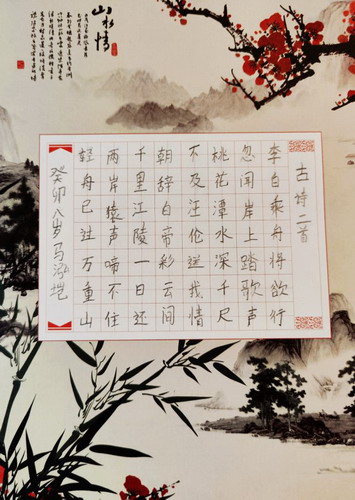 山水情
古诗二首
李白乘舟将欲行
忽闻岸上踏歌声
桃花潭水深千尺
不及汪伦送我情
朝辞白帝彩云间
千里江陵一日还
两岸猿声啼不住
轻舟已过万重山
癸卯 八岁 马泓垲